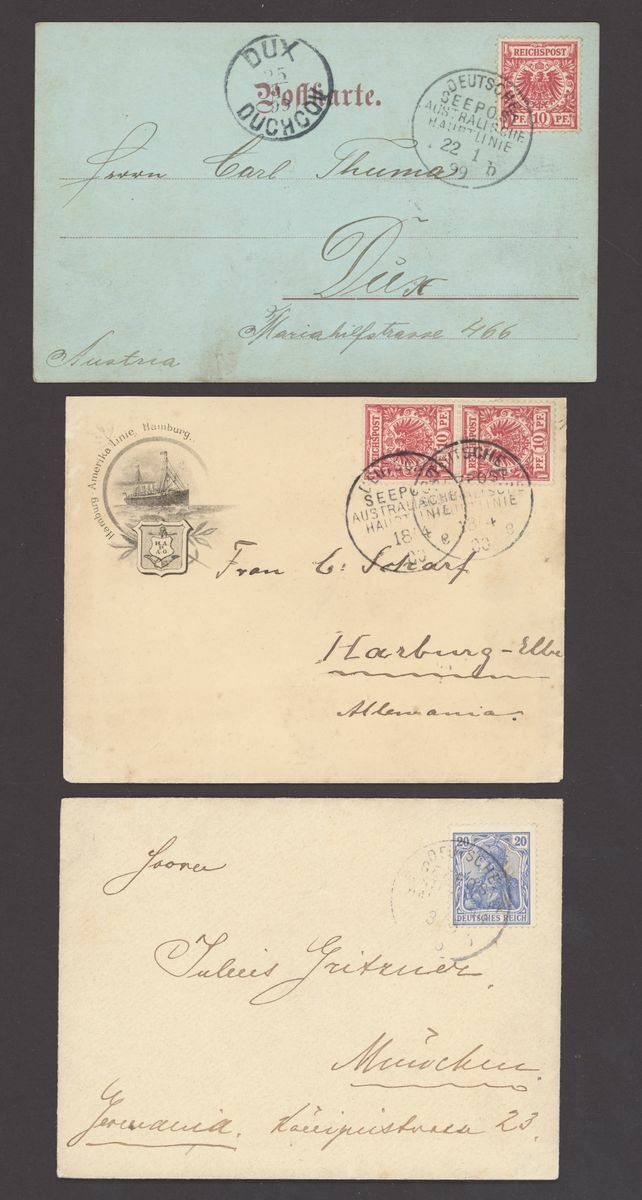 DUX
25
99
DUCHCOV
Postkarte.
REICHSPOST
PF. 10 PF.
DEUTSCHE
SEEPOST
AUSTRALISCHE
HAUPTLINIE
22 1
99 b
Herrn Carl Thuma
Dux
Mariahilfstrasse 466
Austria
Hamburg Amerika Linie, Hamburg.
REICHSPOST
10 PF.
REICHSPOST
10 PF.
SEEPO
AUSTRALISCHE
HAUPTLINIE
18 4
DEUTSCHE
POST
LINIE
4
00 8
Frau C. Scharf
Harburg-Elbe
Allemania.
20 20
DEUTSCHES REICH
DEUTSCHE
3
Herrn
Julius Gritzner
München.
Germania. 23.